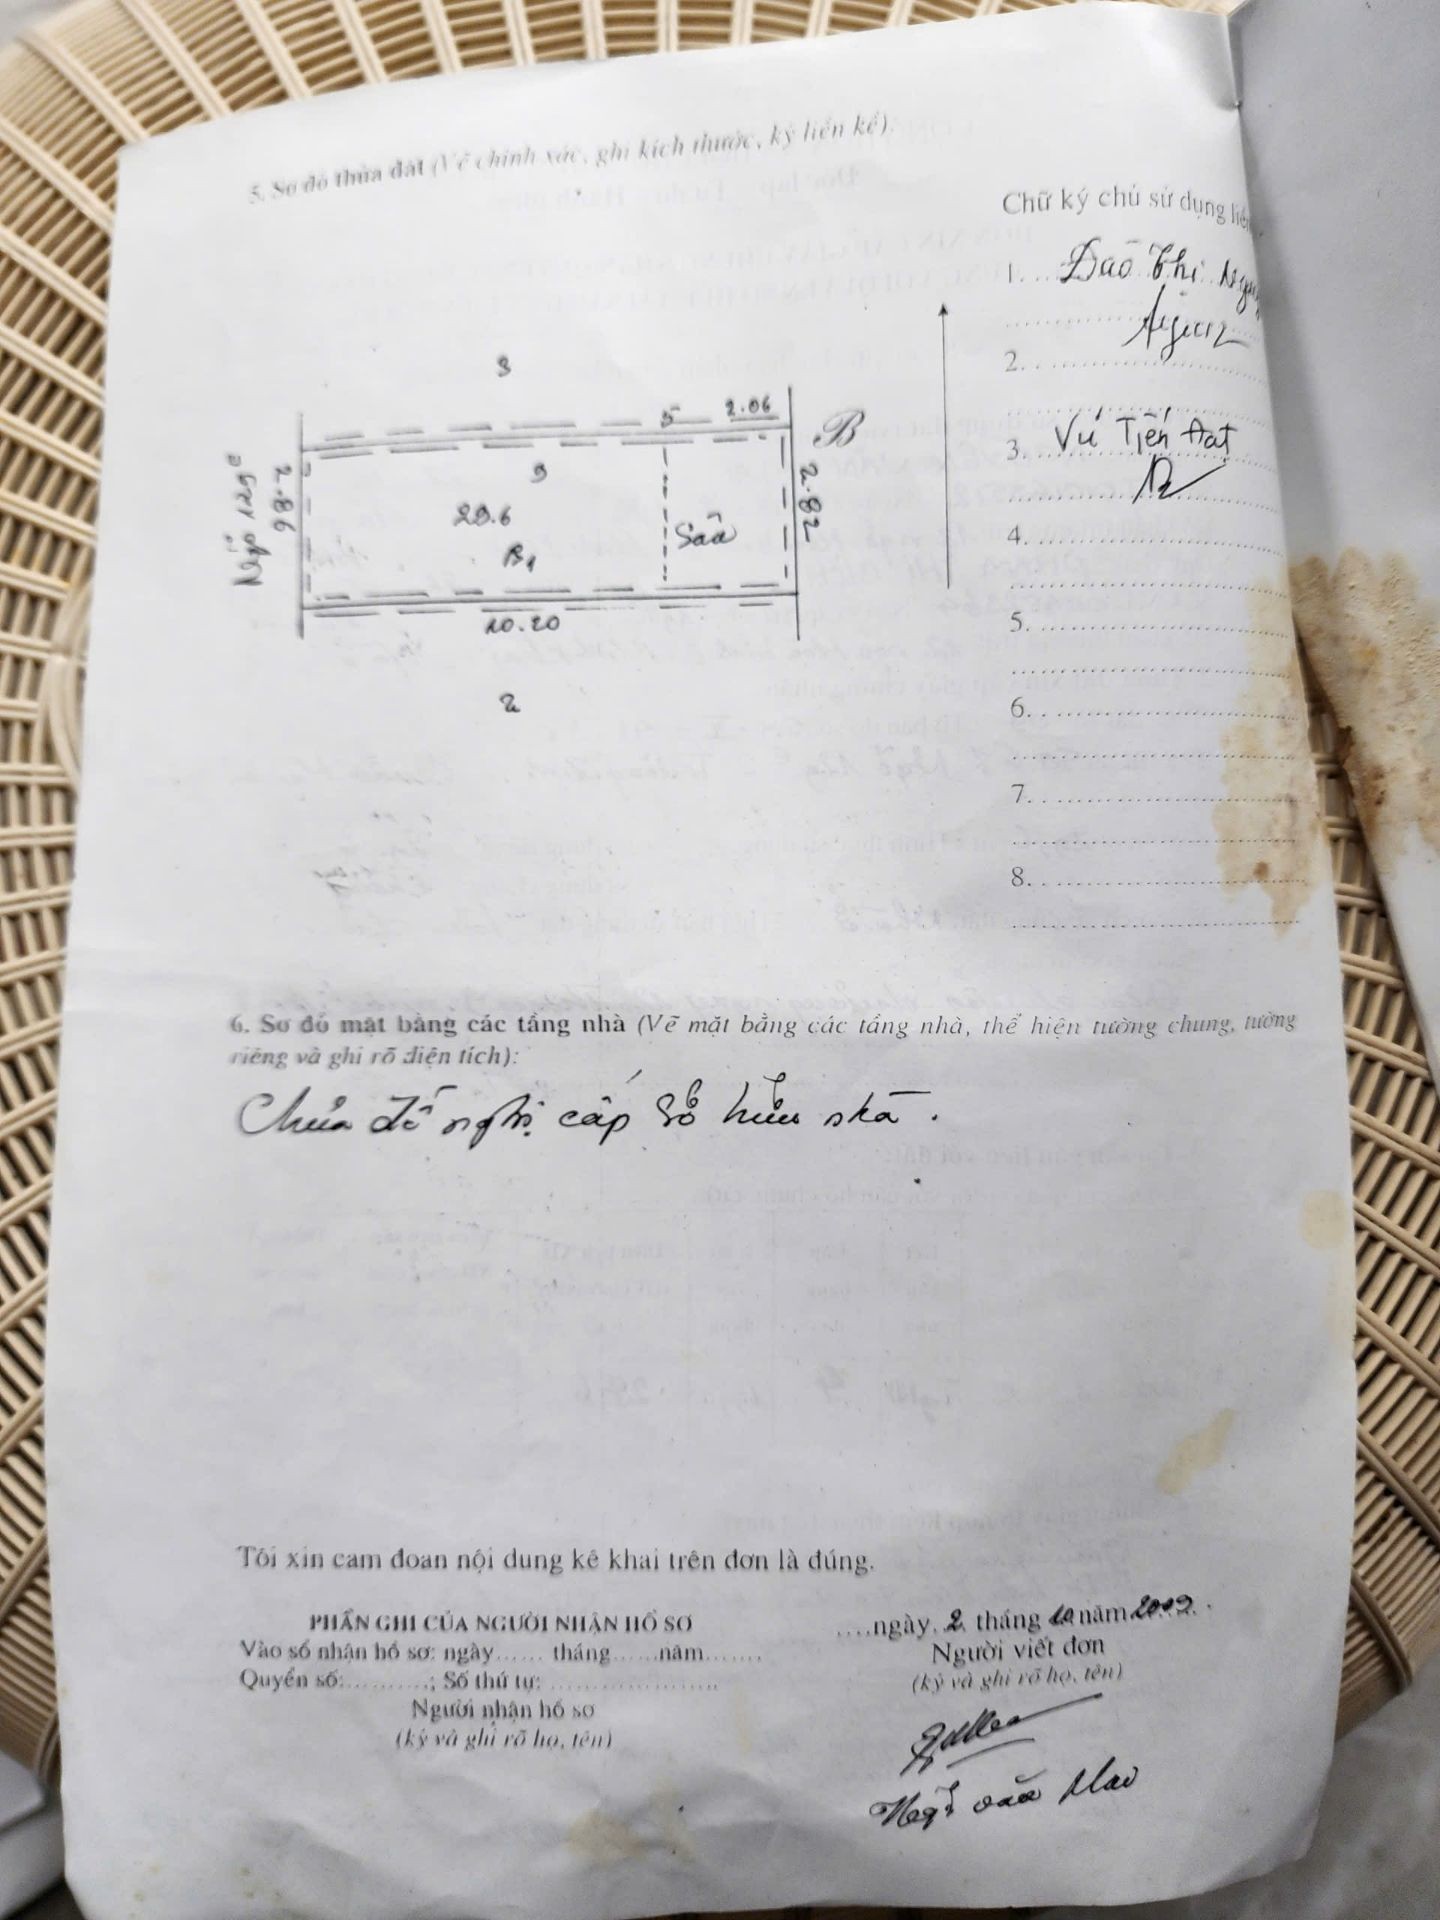 5. Sơ đồ thửa đất (Vẽ chính xác, ghi kích thước, ký liền kề).
Chữ ký chủ sử dụng liền
1. Đào Thị
2.
3. Vũ Tiến Đạt
4.
5.
6.
7.
8.
3
5 2.06
B
Ngõ 129
2.86
9
29.6
B1
Sân
2.82
10.20
2
6. Sơ đồ mặt bằng các tầng nhà (Vẽ mặt bằng các tầng nhà, thể hiện tường chung, tường
riêng và ghi rõ diện tích):
Chưa đề nghị cấp sở hữu nhà.
Tôi xin cam đoan nội dung kê khai trên đơn là đúng.
PHẦN GHI CỦA NGƯỜI NHẬN HỒ SƠ
Vào sổ nhận hồ sơ: ngày...... tháng......năm.......
Quyển số:..........; Số thứ tự: ....................
Người nhận hồ sơ
(ký và ghi rõ họ, tên)
....ngày 2 tháng 10 năm 2009
Người viết đơn
(ký và ghi rõ họ, tên)
văn